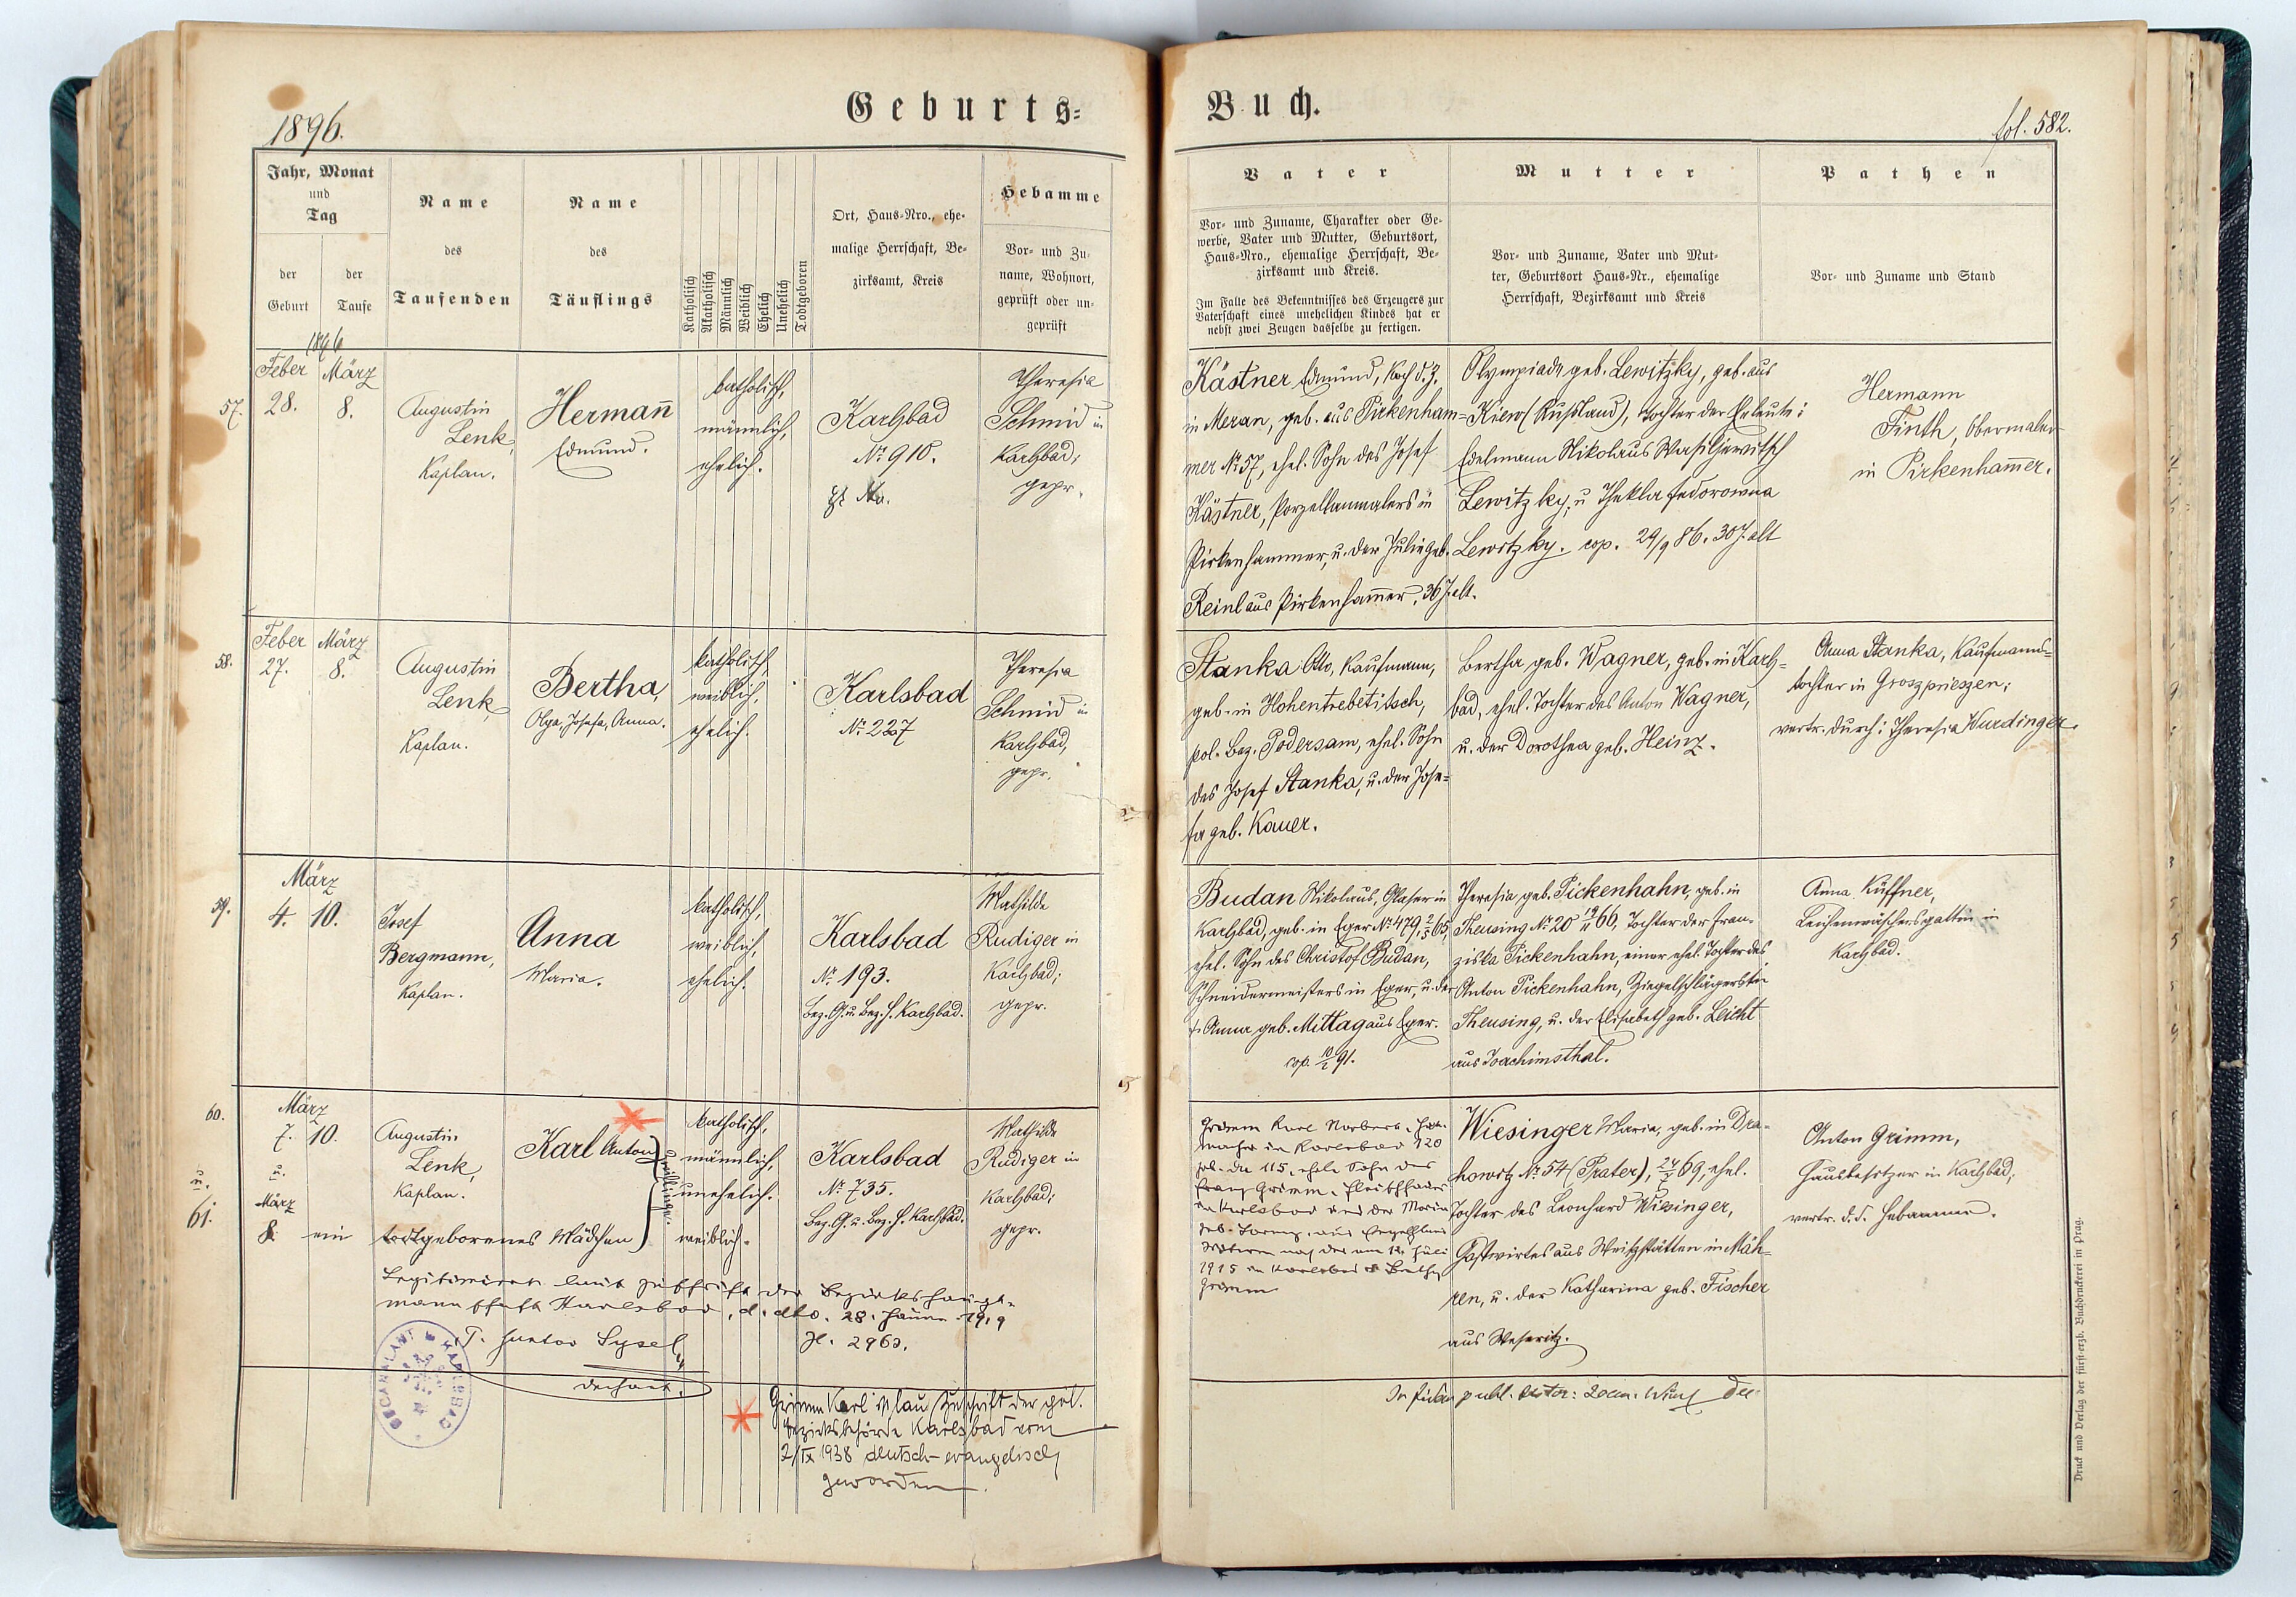 1896.
Geburts=
Buch.
fol. 582.
Jahr, Monat
und
Tag
der
Geburt
der
Taufe
Name
des
Taufenden
Name
des
Täuflings
Katholisch
Akatholisch
Männlich
Weiblich
Ehelich
Unehelich
Todtgeboren
Ort, Haus-Nro., ehe-
malige Herrschaft, Be-
zirksamt, Kreis
Hebamme
Vor- und Zu-
name, Wohnort,
geprüft oder un-
geprüft
Vater
Vor- und Zuname, Charakter oder Ge-
werbe, Vater und Mutter, Geburtsort,
Haus-Nro., ehemalige Herrschaft, Be-
zirksamt und Kreis.
Im Falle des Bekenntnisses des Erzeugers zur
Vaterschaft eines unehelichen Kindes hat er
nebst zwei Zeugen dasselbe zu fertigen.
Mutter
Vor- und Zuname, Vater und Mut-
ter, Geburtsort Haus-Nr., ehemalige
Herrschaft, Bezirksamt und Kreis
Pathen
Vor- und Zuname und Stand
1896
57.
Feber
28.
März
8.
Augustin
Lenk,
Kaplan.
Hermañ
Edmund.
katholisch,
männlich,
ehelich.
Karlsbad
№ 910.
Theresia
Schmid in
Karlsbad;
gepr.
Kästner Edmund, Koch d. Z.
in Meran, geb. aus Pirkenham=
mer № 57, ehel. Sohn des Josef
Kästner, Porzellanmalers in
Pirkenhammer, u. der Julie geb.
Reinl aus Pirkenham̄er, 36 J. alt.
Olympiade geb. Lewitzky, geb. aus
Kiew (Rußland), Tochter der Eheleute:
Edelmann Nikolaus Wasiljewitsch
Lewitzky, u Thekla Fedorowna
Lewitzky. cop. 29/9 86. 30 J. alt
Hermann
Finth, Obermaler
in Pirkenham̄er.
58.
Feber
27.
März
8.
Augustin
Lenk,
Kaplan.
Bertha,
Olga, Josefa, Anna.
katholisch,
weiblich,
ehelich.
Karlsbad
№ 227
Theresia
Schmid in
Karlsbad,
gepr.
Stanka Otto, Kaufmann,
geb. in Hohentrebetitsch,
pol. Bez. Podersam, ehel. Sohn
des Josef Stanka, u. der Jose=
fa geb. Kauer.
Bertha geb. Wagner, geb. in Karls=
bad, ehel. Tochter des Anton Wagner,
u. der Dorothea geb. Heinz.
Anna Stanka, Kaufmanns=
tochter in Groszprieszen;
vertr. durch: Theresia Wurdinger.
59.
März
4. 10.
Josef
Bergmann,
Kaplan.
Anna
Maria.
katholisch,
weiblich,
ehelich.
Karlsbad
№ 193.
Bez. G. u. Bez. H. Karlsbad.
Mathilde
Rudiger in
Karlsbad;
gepr.
Budan Nikolaus, Glaser in
Karlsbad, geb. in Eger № 479, 2/5 65,
ehel. Sohn des Christof Budan,
Schneidermeisters in Eger, u. der
Anna geb. Mittag aus Eger.
cop. 10/1 91.
Theresia geb. Pickenhahn, geb. in
Theusing № 20 19/11 66, Tochter der Fran=
ziska Pickenhahn, einer ehel. Tochter des
Anton Pickenhahn, Ziegelschlägers in
Theusing, u. der Elisabeth geb. Leicht
aus Joachimsthal.
Anna Küffner,
Leichenwäschersgattin in
Karlsbad.
60.
u.
61.
März
7. 10.
u.
März
8. ein todtgeborenes Mädchen
Augustin
Lenk,
Kaplan.
Karl Anton
Zwillinge.
katholisch,
männlich,
unehelich.
weiblich.
Karlsbad
№ 735.
Bez. G. u. Bez. H. Karlsbad.
Mathilde
Rudiger in
Karlsbad;
gepr.
Grimm Karl
in Karlsbad 120
115, ehel. Sohn des
Franz Grimm, Fleischhauer
in Karlsbad und der Maria
12. Juli
1915 in Karlsbad
Grimm
Wiesinger Maria, geb. in Dra=
howitz № 54 (Prater), 24/7 69, ehel.
Tochter des Leonhard Wiesinger,
Gastwirtes aus Weißstätten in Mäh=
ren, u. der Katharina geb. Fischer
aus Weseritz.
Anton Grimm,
Hausbesitzer in Karlsbad,
vertr. d. d. Hebamme.
Legitimirt laut Zuschrift der Bezirkshaupt=
mannschaft Karlsbad, d. dto. 28. Jänner 1919
Zl. 2963.
DECANALAMT KARLSBAD
Dechant.
Grimm Karl ist laut Zuschrift der pol.
Bezirksbehörde Karlsbad vom
2/IX 1938 deutsch-evangelisch
geworden.
Druck und Verlag der fürst-erzb. Buchdruckerei in Prag.